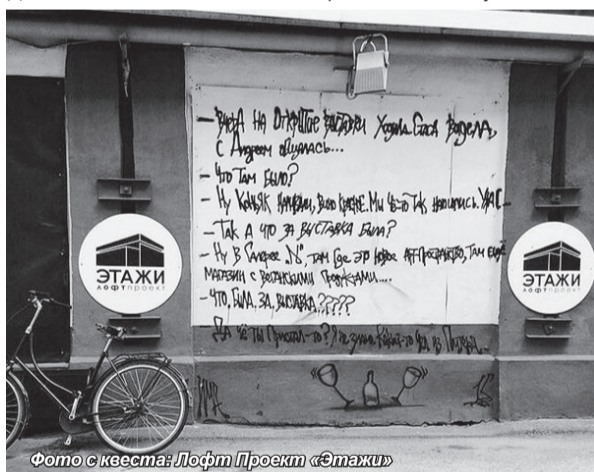 – Вчера на открытие выставки ходила. Стаса видела,
с Андреем общалась...
– Что там было?
– Ну коньяк наливали, вино красное. Мы че-то так Ужас...
– Так а что за выставка была?
– Ну в галерее "N", там где это новое арт-пространство, там ещё
магазин с веганскими
– Что. Была. За. Выставка?????
Да чё ты пристал-то? Я не знаю. Какой-то из
ЭТАЖИ
лофт проект
ЭТАЖИ
лофт проект
Фото с квеста: Лофт Проект «Этажи»